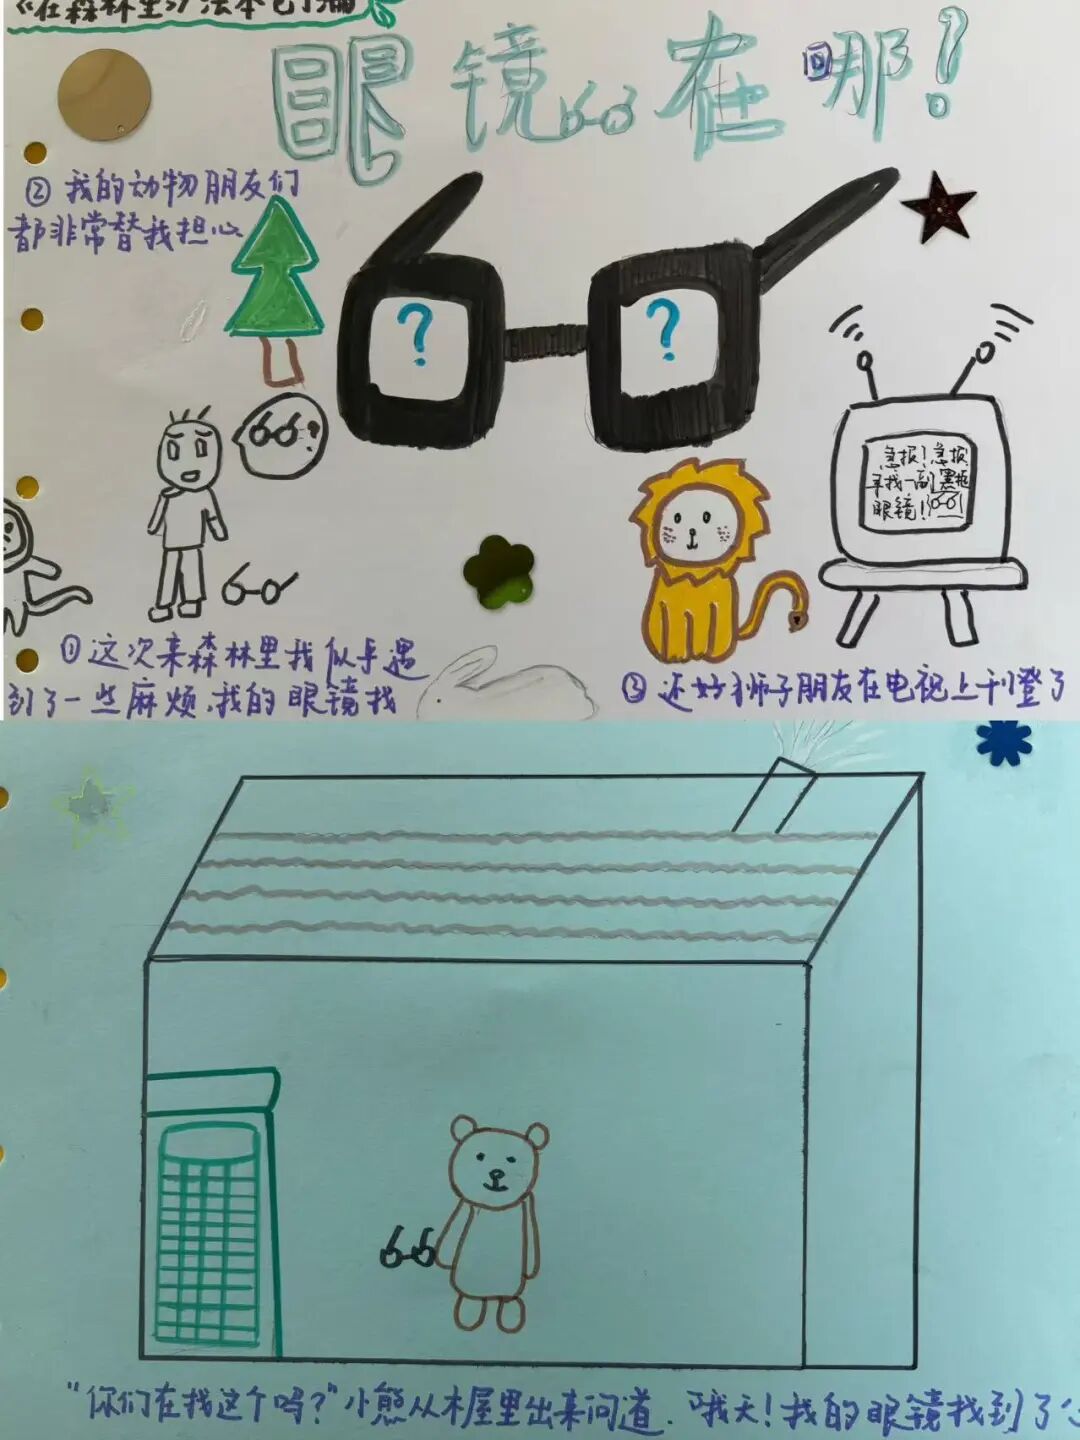 《在森林里》绘本
眼镜在哪!
② 我的动物朋友们
都非常替我担心
急报!急报
寻找一副黑框
眼镜!
① 这次来森林里我似乎遇
到了一些麻烦,我的眼镜找
③ 还好狮子朋友在电视上刊登了
? ?
"你们在找这个吗?"小熊从木屋里出来问道.“哦天!我的眼镜找到了